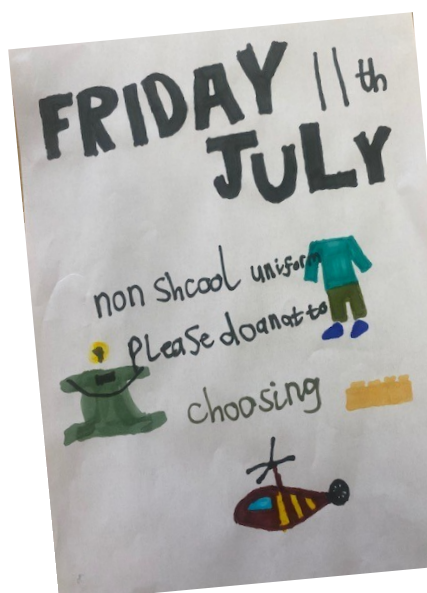 FRIDAY 11th
JULY
non Shcool uniform
please doanat to
choosing